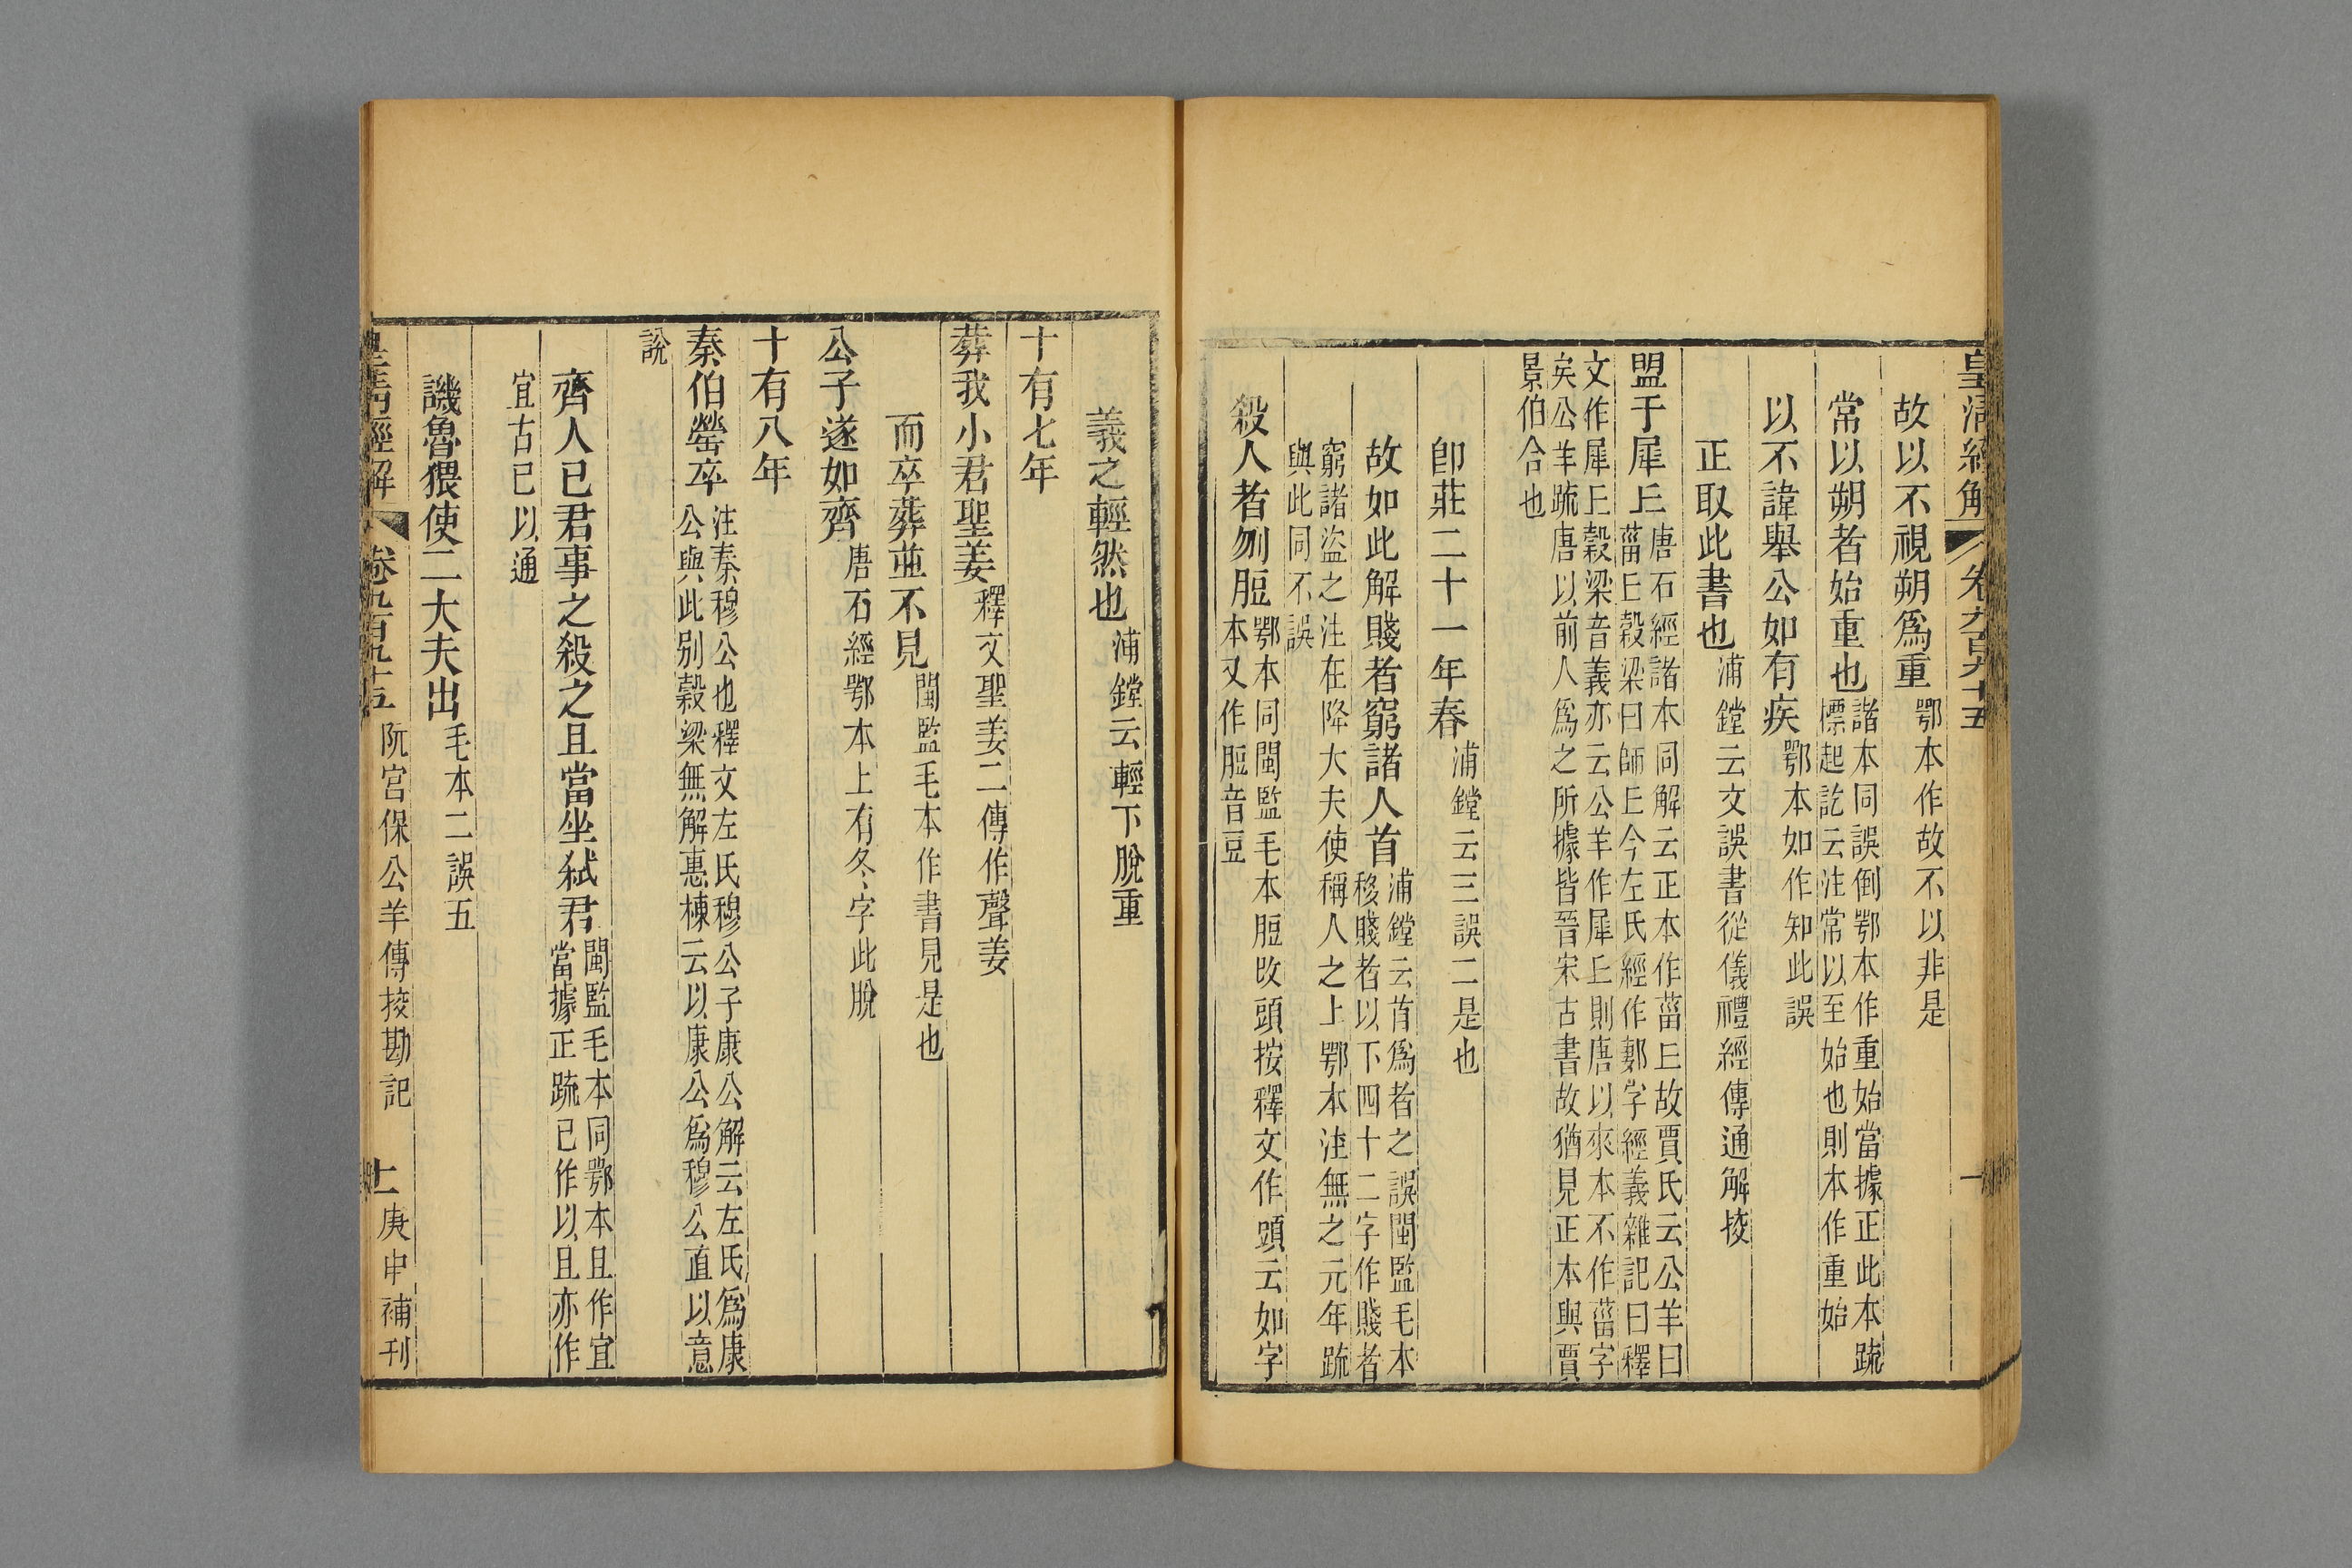 皇清經解 卷九百九十五 一
故以不視朔爲重鄂本作故不以非是
常以朔者始重也諸本同誤倒鄂本作重始當據正此本疏
標起訖云注常以至始也則本作重始
以不諱舉公如有疾鄂本如作知此誤
正取此書也浦鏜云文誤書從儀禮經傳通解挍
盟于犀丘唐石經諸本同解云正本作菑丘故賈氏云公羊曰
菑丘穀梁曰師丘今左氏經作郪字經義雜記曰釋
文作犀丘穀梁音義亦云公羊作犀丘則唐以來本不作菑字
矣公羊疏唐以前人爲之所據皆晉宋古書故猶見正本與賈
景伯合也
卽莊二十一年春浦鏜云三誤二是也
故如此解賤者窮諸人首浦鏜云首爲者之誤閩監毛本
移賤者以下四十二字作賤者
窮諸盜之注在降大夫使稱人之上鄂本注無之元年疏
與此同不誤
殺人者刎脰鄂本同閩監毛本脰改頭按釋文作頭云如字
本又作脰音豆
義之輕然也浦鏜云輕下脫重
十有七年
葬我小君聖姜釋文聖姜二傳作聲姜
而卒葬並不見閩監毛本作書見是也
公子遂如齊唐石經鄂本上有冬字此脫
十有八年
秦伯罃卒注秦穆公也釋文左氏穆公子康公解云左氏爲康
公與此別穀梁無解惠棟云以康公爲穆公直以意
說
齊人已君事之殺之且當坐弒君閩監毛本同鄂本且作宜
當據正疏已作以且亦作
宜古已以通
譏魯猥使二大夫出毛本二誤五
皇清經解 卷九百九十五 阮宮保公羊傳挍勘記 十一 庚申補刊